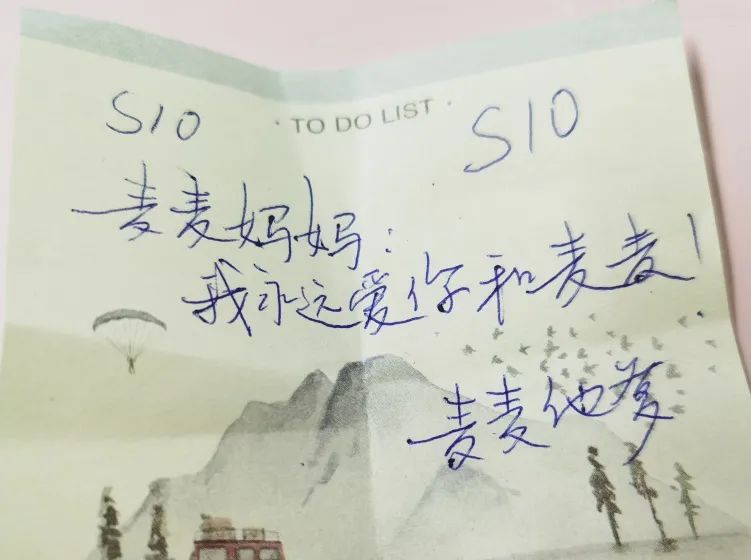 S10 · TO DO LIST · S10
麦麦妈妈：
我永远爱你和麦麦！
麦麦他爹